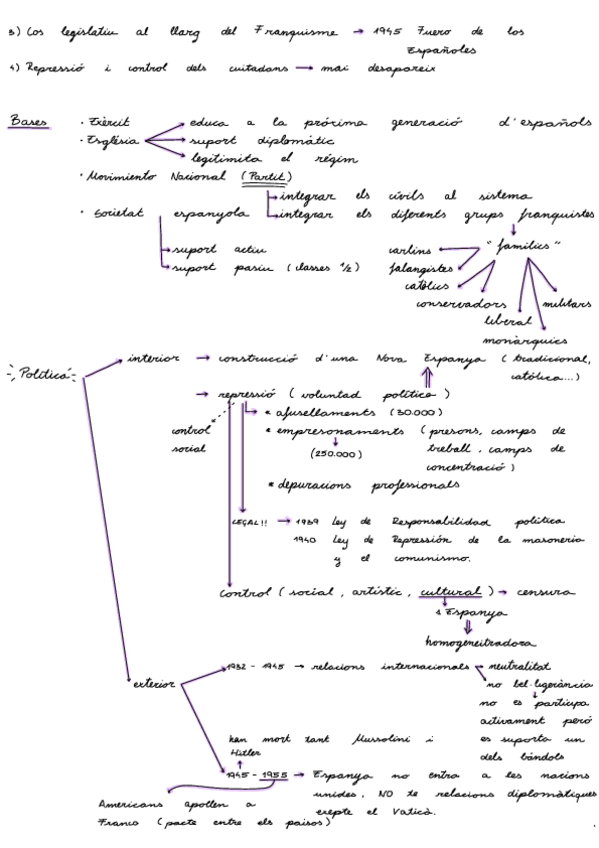 3) Cos legislatiu al llarg del Franquisme → 1945 Fuero de los
Españoles
4) Repressió i control dels ciutadans → mai desapareix
Bases
· Exèrcit
· Església
educa a la pròxima generació d'español
suport diplomàtic
legitimita el règim
· Movimiento Nacional (Partit)
integrar els civils al sistema
integrar els diferents grups franquistes
· Societat espanyola
suport actiu
suport pasiu (classes 1/2)
"famílies"
carlins
falangistes
catòlics
conservadors
liberal
monàrquics
militars
Política
interior → construcció d'una Nova Espanya (tradicional,
catòlica...)
→ repressió (voluntad política)
control
social
* afusellaments (30.000)
* empresonaments (presons, camps de
treball, camps de
concentració)
(250.000)
* depuracions professionals
LEGAL!! → 1939 Ley de Responsabilidad política
1940 Ley de Represión de la masoneria
y el comunismo.
control (social, artístic, cultural) → censura
1 Espanya
homogeneitzadora
exterior
1932 - 1945 → relacions internacionals
neutralitat
no bel·ligerància
no es participa
activament però
es suporta un
dels bàndols
han mort tant Mussolini i
Hitler
1945 - 1955 → Espanya no entra a les nacions
unides, NO te relacions diplomàtiques
exepte el Vaticà.
Americans apollen a
Franco (pacte entre els països)